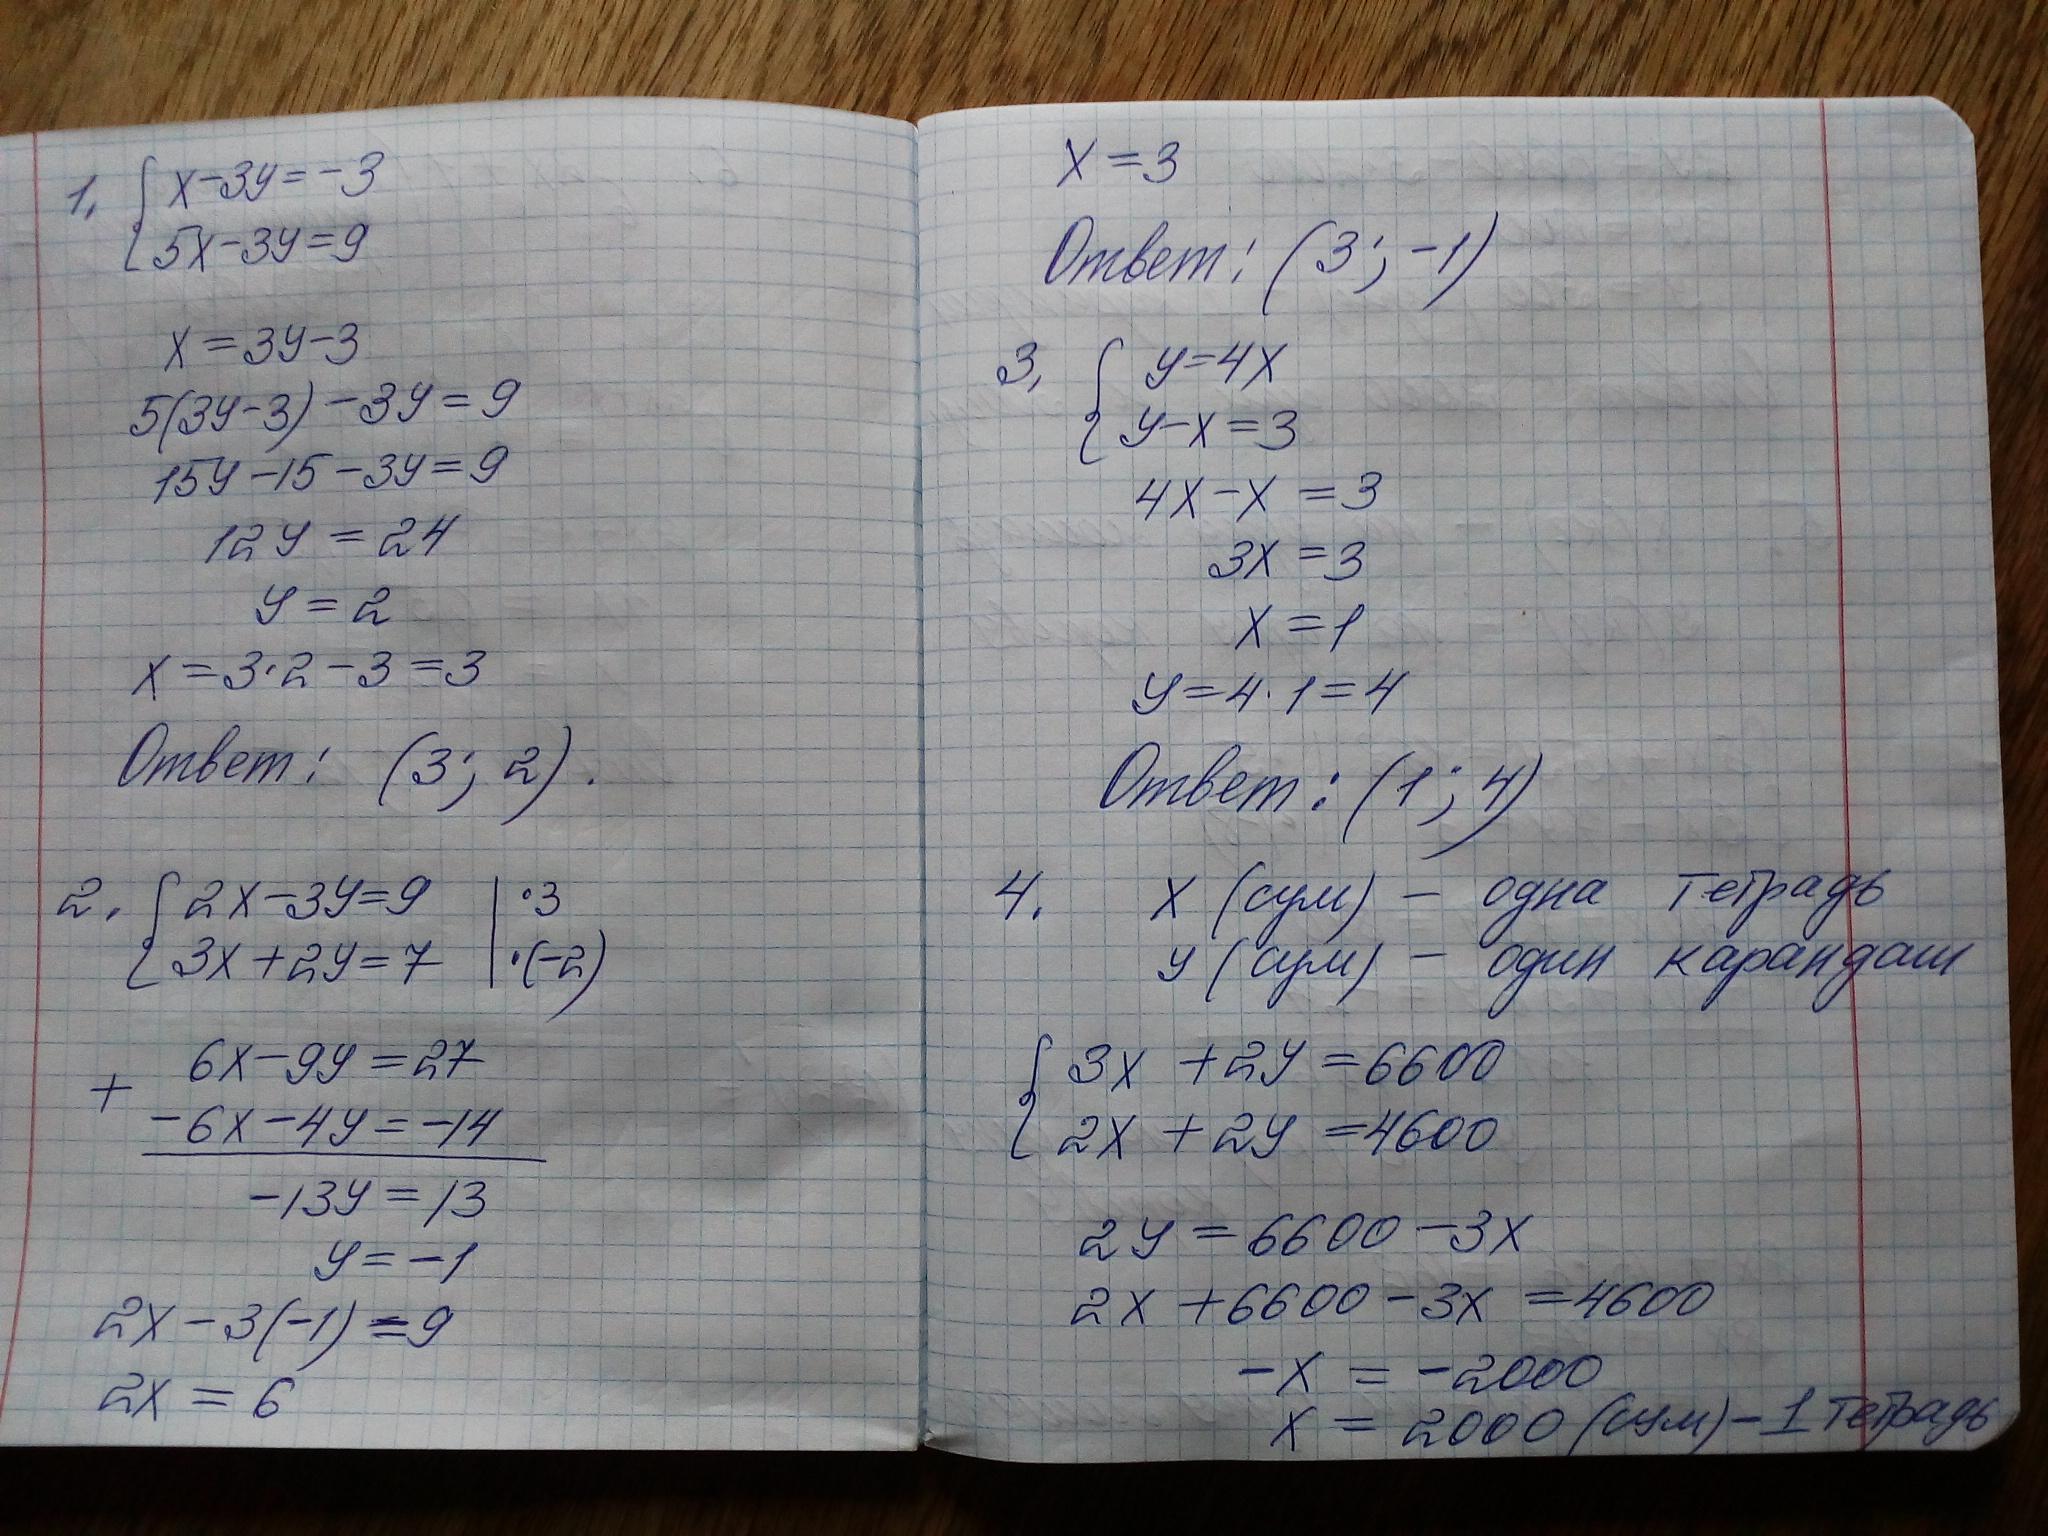 1. { x-3y=-3
5x-3y=9
x=3y-3
5(3y-3)-3y=9
15y-15-3y=9
12y=24
y=2
x=3·2-3=3
Ответ: (3; 2).
2. { 2x-3y=9 | ·3
3x+2y=7 | ·(-2)
+ 6x-9y=27
-6x-4y=-14
-13y=13
y=-1
2x-3(-1)=9
2x=6
x=3
Ответ: (3; -1)
3. { y=4x
y-x=3
4x-x=3
3x=3
x=1
y=4·1=4
Ответ: (1; 4)
4. x (сум) - одна тетрадь
y (сум) - один карандаш
{ 3x+2y=6600
2x+2y=4600
2y=6600-3x
2x+6600-3x=4600
-x=-2000
x=2000 (сум) - 1 тетрадь